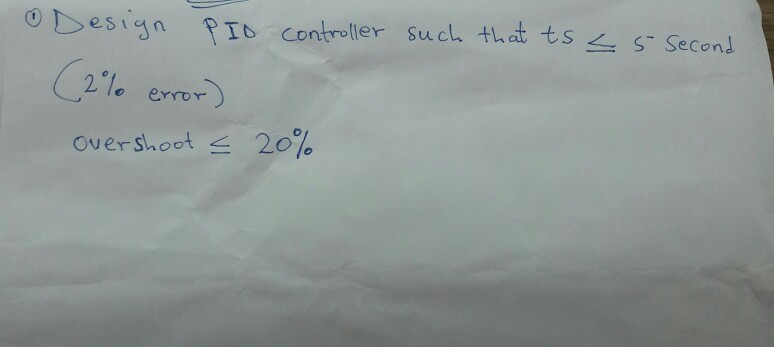 ① Design PID controller such that ts ≤ 5 Second
(2% error)
overshoot ≤ 20%